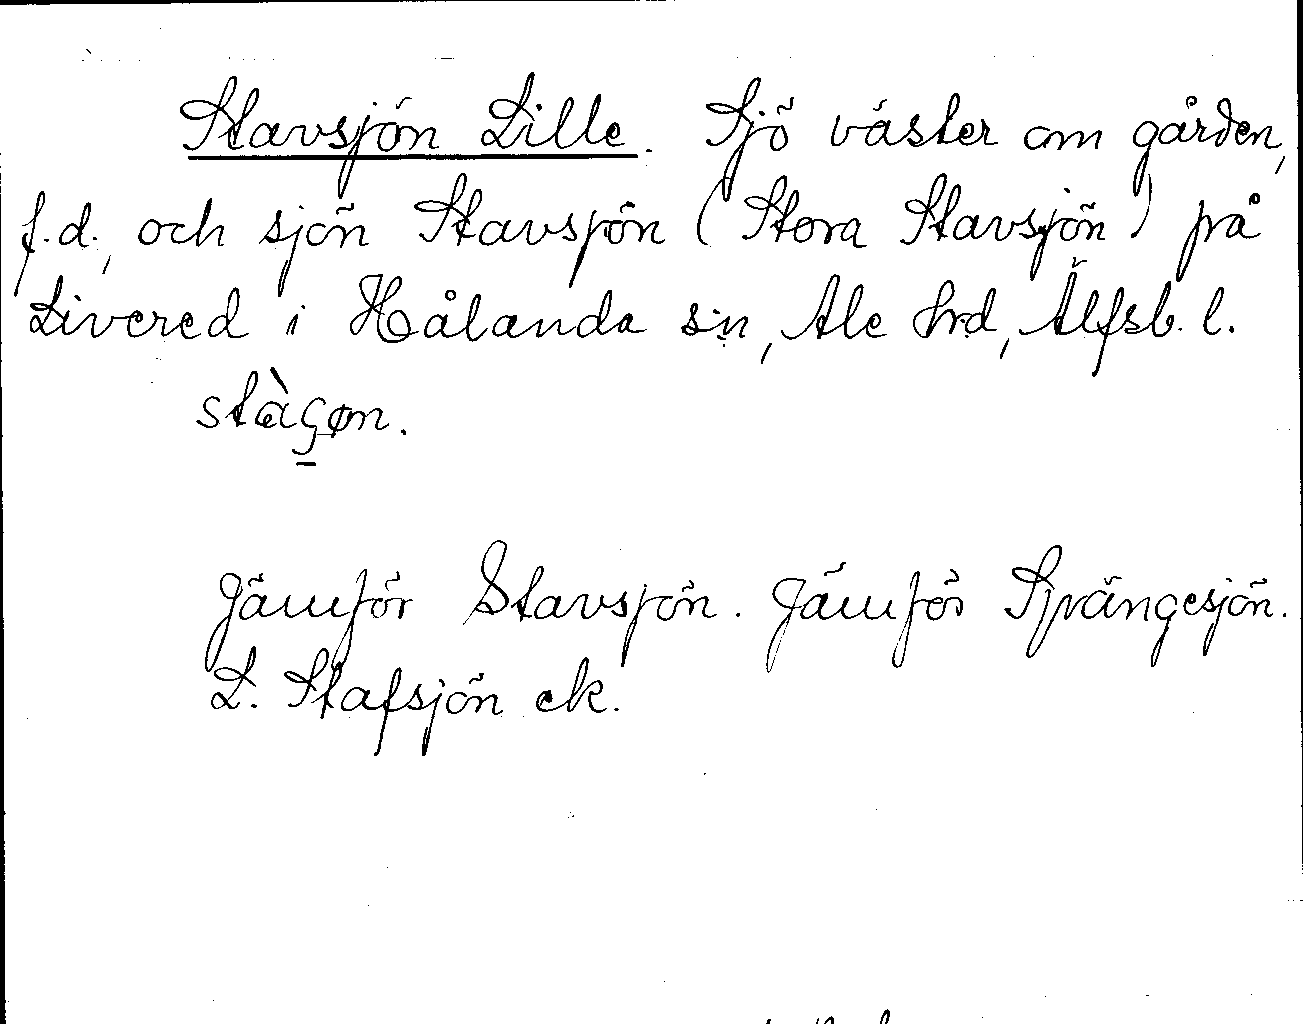 Stavsjön Lille. Sjö väster om gården,
f.d., och sjön Stavsjön (Stora Stavsjön) på
Livered i Hålanda sn, Ale hd, Älfsb. l.
stàçøn.
Jämför Stavsjön. Jämför Sprängesjön.
L. Stafsjön ek.